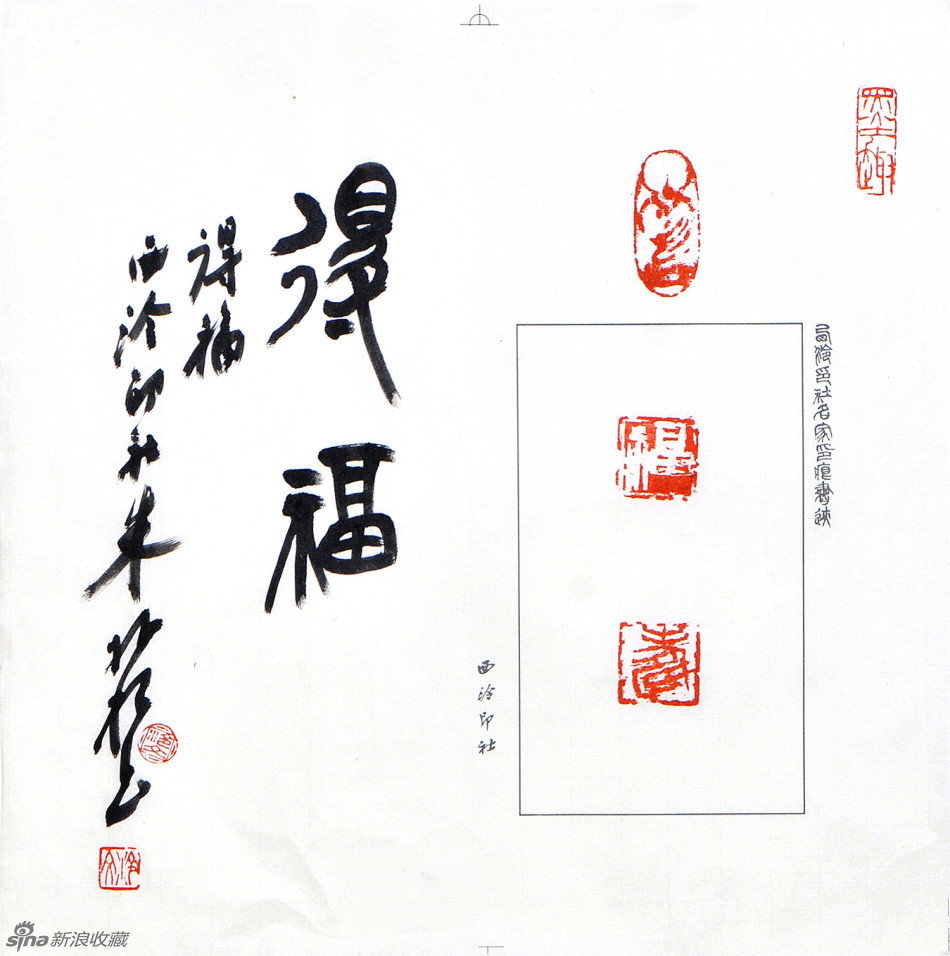 西泠印社名家印痕書迹
福
壽
西泠印社
得福
得福
西泠印社朱
sina新浪收藏